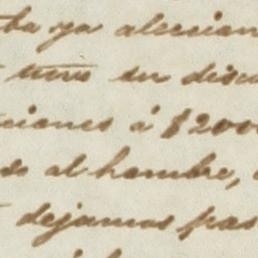 ba ya aleccion
tuvo su discu
ciones á $2000
do al hombre,
dejamos pas